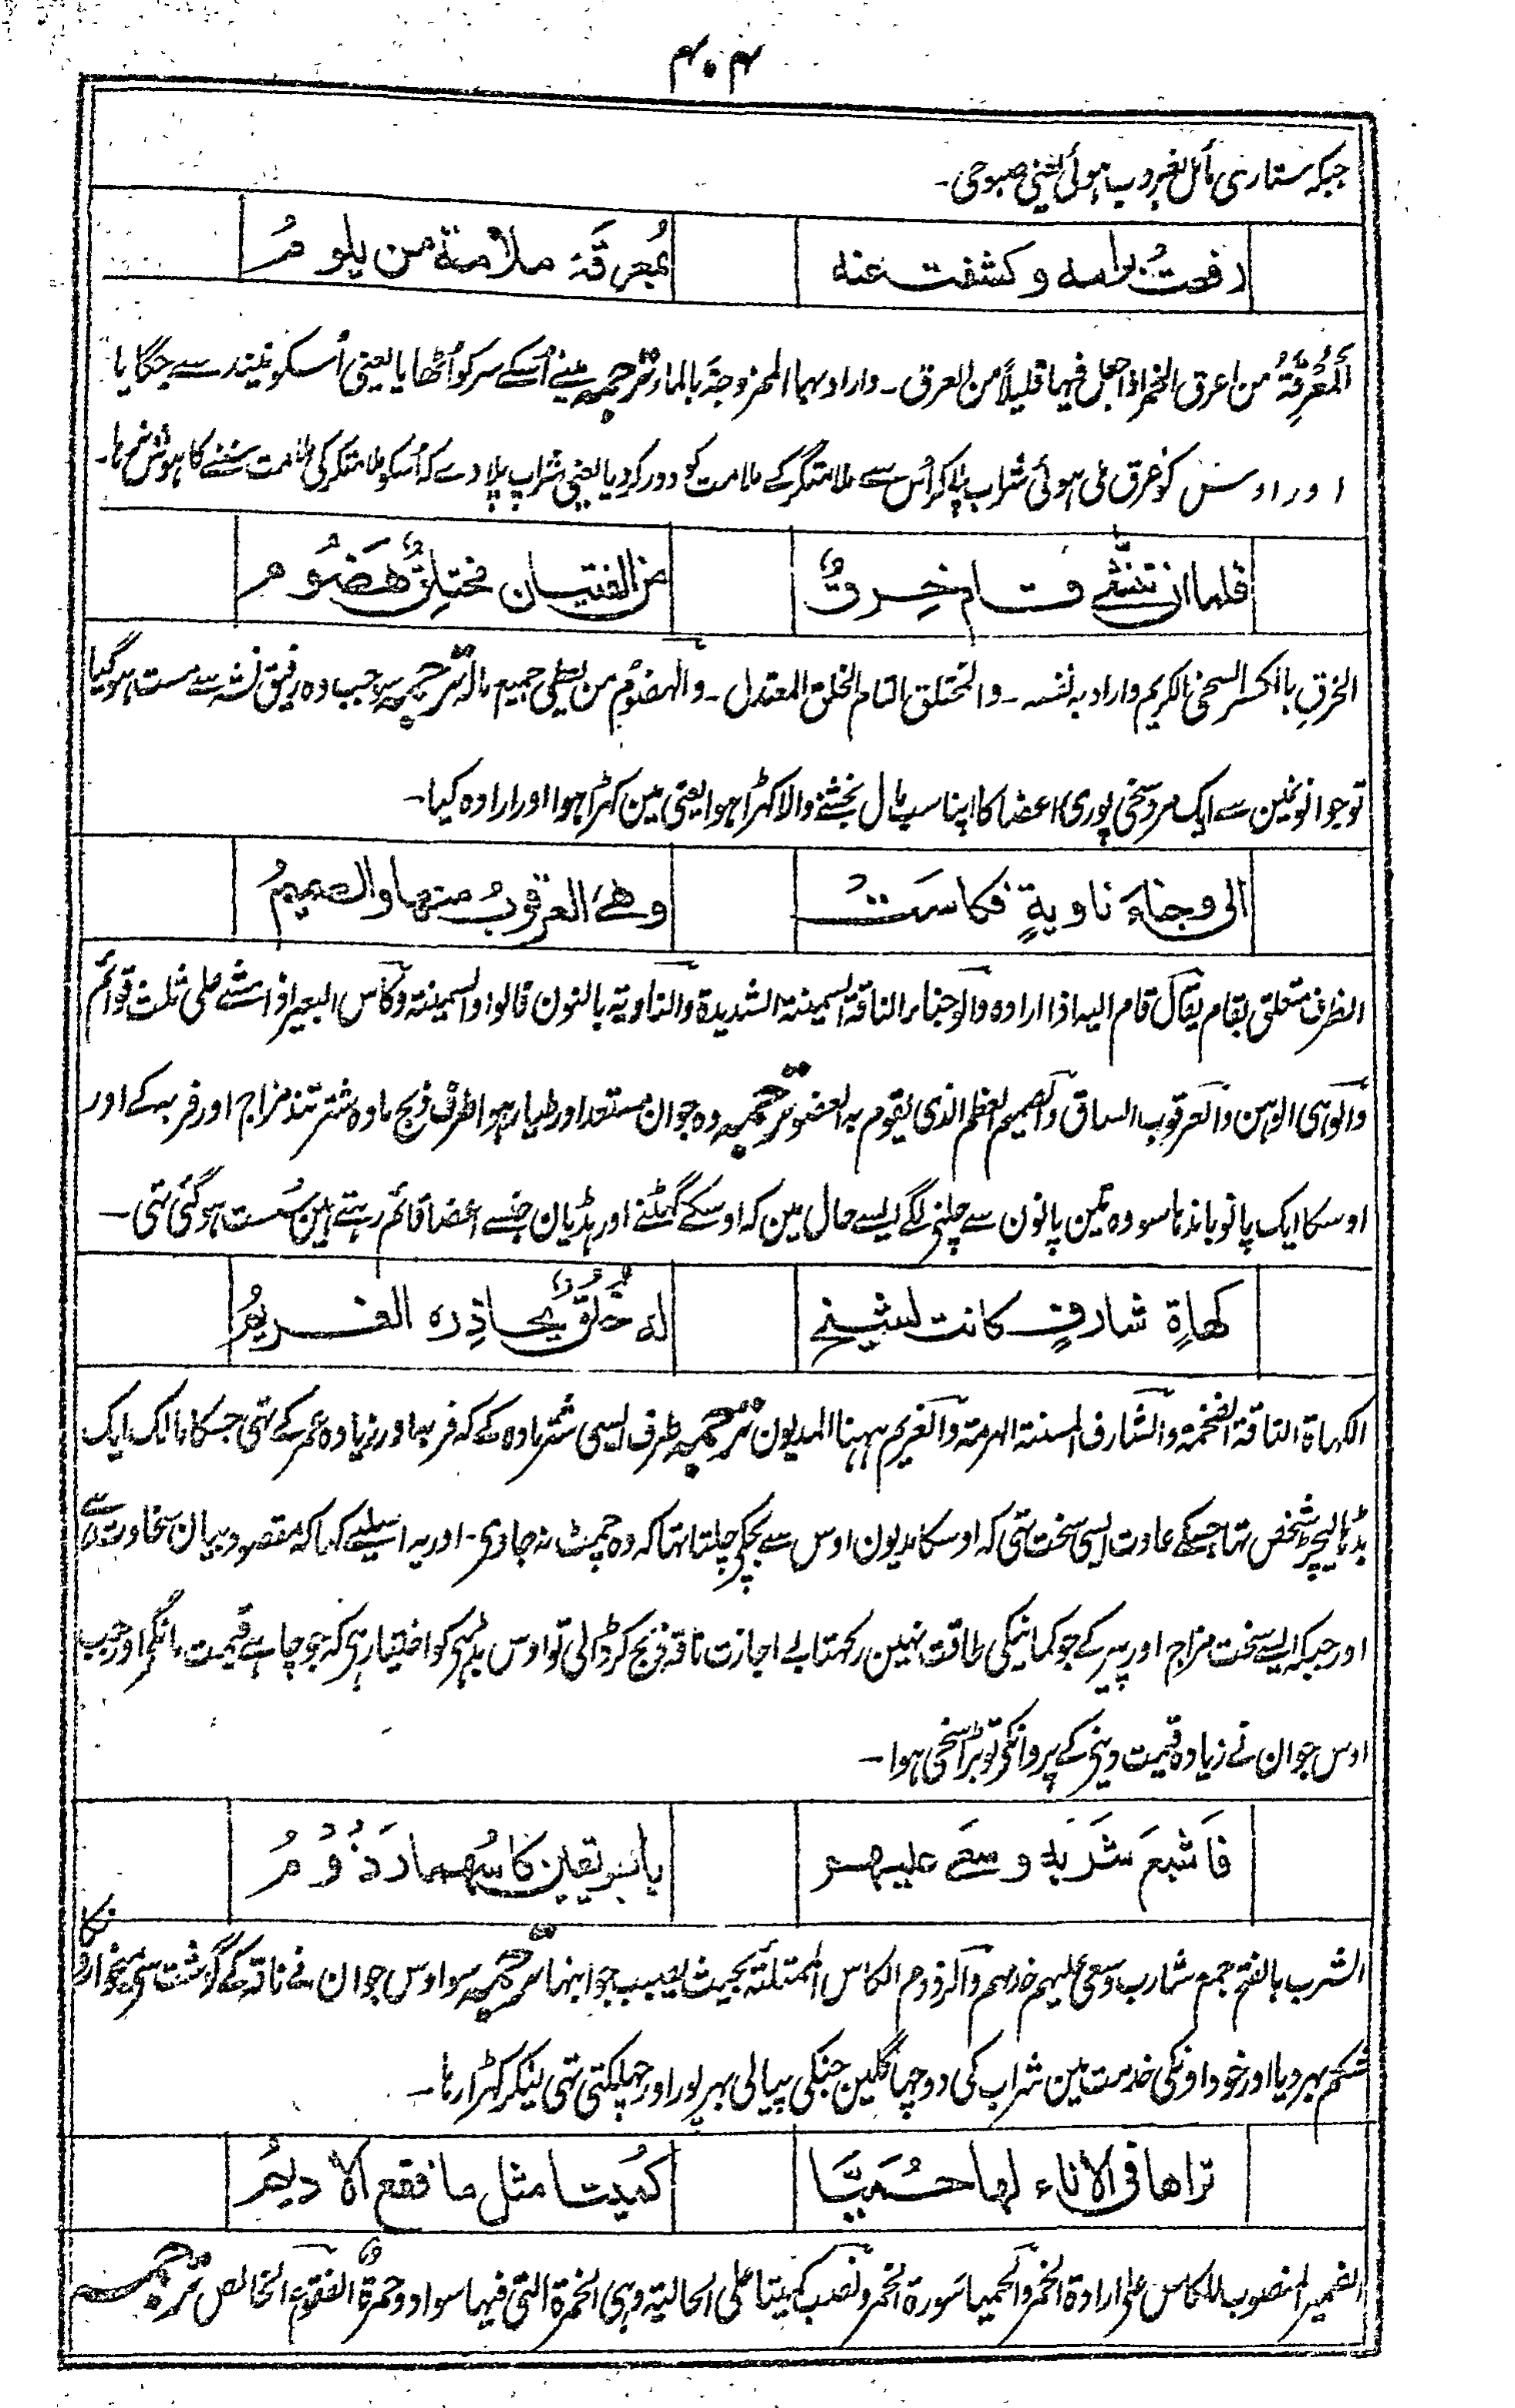 ۴۰۴
جبکہ ستاری مائل بغروب ہوئی یعنی صبوحی۔
رفعتُ براسہ وکشفت عنہ بمُعرَقَۃ ملامۃ من یلومُ
اَلْمُعْرَقَۃُ من اعرق الخمر اذا جعل فیہا قلیلاً من العرق۔ واراد بہا الممزوجۃ بالماء ترجمہ مینے اُسکے سر کو اُٹھایا یعنی اُسکو نیند سے جگایا
اور اوس کو عرق ملی ہوئی شراب پلا کر اُس سے ملامتگر کے ملامت کو دور کر دیا یعنی شراب پلا دے کہ اُسکو ملامتگر کی ملامت سننے کا ہوش نرہا۔
فلما ان تنشّٰے قام خِرقٌ من الفتیان مختلِقٌ ھَضُوم
الخرق بالکسر السخی الکریم واراد بہ نفسہ۔ والمختلق التام الخلق المعتدل۔ والہضوم من یعطی جمیع مالہ ترجمہ سو جب وہ رفیق نشہ سے مست ہو گیا
تو جوانونمین سے ایک مرد سخی پوری اعضا کا اپنا سب مال بخشنے والا کہڑا ہوا یعنی مین کہڑا ہوا اور ارادہ کیا۔
الی وجناءَ ناویۃٍ فکاسَتْ وھےَ العرقوبُ منہا والصمیمُ
الظرف متعلق بقام یقال قام الیہ اذا ارادہ والوجناء الناقۃ السمینۃ الشدیدۃ والناویۃ بالنون قالوا والسمینۃ وکاس البعیر اذا مشے علی ثلث قوائم
والوہی الوہن والعرقوب الساق والصمیم العظم الذی یقوم بہ العضو ترجمہ وہ جوان مستعد اور طیار ہوا طرف ذبح مادہ شتر تند مزاج اور فربہ کے اور
اوسکا ایک پانو باندہا سو وہ تین پانون سے چلنے لگے ایسے حال مین کہ اوسکے گھٹنے اور ہڈیان جنسے اعضا قائم رہتے ہین سُست ہو گئی تہی۔
کھاۃٍ شارفٍ کانت لشیخٍ لہ خُلُقٌ یُحاذِرہ الغریمُ
الکہاۃ الناقۃ الضخمۃ والشارف المسنۃ الہرمۃ والغریم ہہنا المدیون ترجمہ طرف ایسی شتر مادہ کے کہ فربہ اور زیادہ عمر کے تہی جسکا مالک ایک
بڈہا لیچڑ شخص تہا جسکے عادت ایسی سخت تہی کہ اوسکا مدیون اوس سے بچکر چلتا تہا کہ وہ چمٹ نہ جاوی۔ اور یہ اسلیے کہا کہ مقصود بیان سخاوت ہے
اور جبکہ ایسے سخت مزاج اور پیر کے جو کمانیکی طاقت نہین رکہتا بے اجازت ناقہ ذبح کر ڈالی تو اوس بڈہی کو اختیار ہی کہ جو چاہے قیمت مانگے اور جب
اوس جوان نے زیادہ قیمت دینے کے پروا نکی تو بڑا سخی ہوا۔
فَاشبَعَ شَربَہ وسعَے علیہم بابریقین کاسُہما رَذُوْمُ
الشرب بالفتح جمع شارب وسعی علیہم خدمہم والرذوم الکاس الممتلئۃ بحیث یصبب جوانبہا ترجمہ سو اوس جوان نے ناقہ کے گوشت سے میخوارونکا
شکم بہر دیا اور خود اونکی خدمت مین شراب کی دو چہاگلین جنکی پیالی بہرپور اور چہلکتی تہی لیکر کہڑا رہا۔
تراھا فی الاناء لہا حُمَیَّا کُمَیتا مثل ما فقع الادیمُ
الضمیر المنصوب للکاس علی ارادۃ الخمر والحمیا سَورۃ الخمر ونصب کمیتا علی الحالیۃ وہی الخمرۃ التی فیہا سواد وحمرۃ الفقوع الخالص ترجمہ